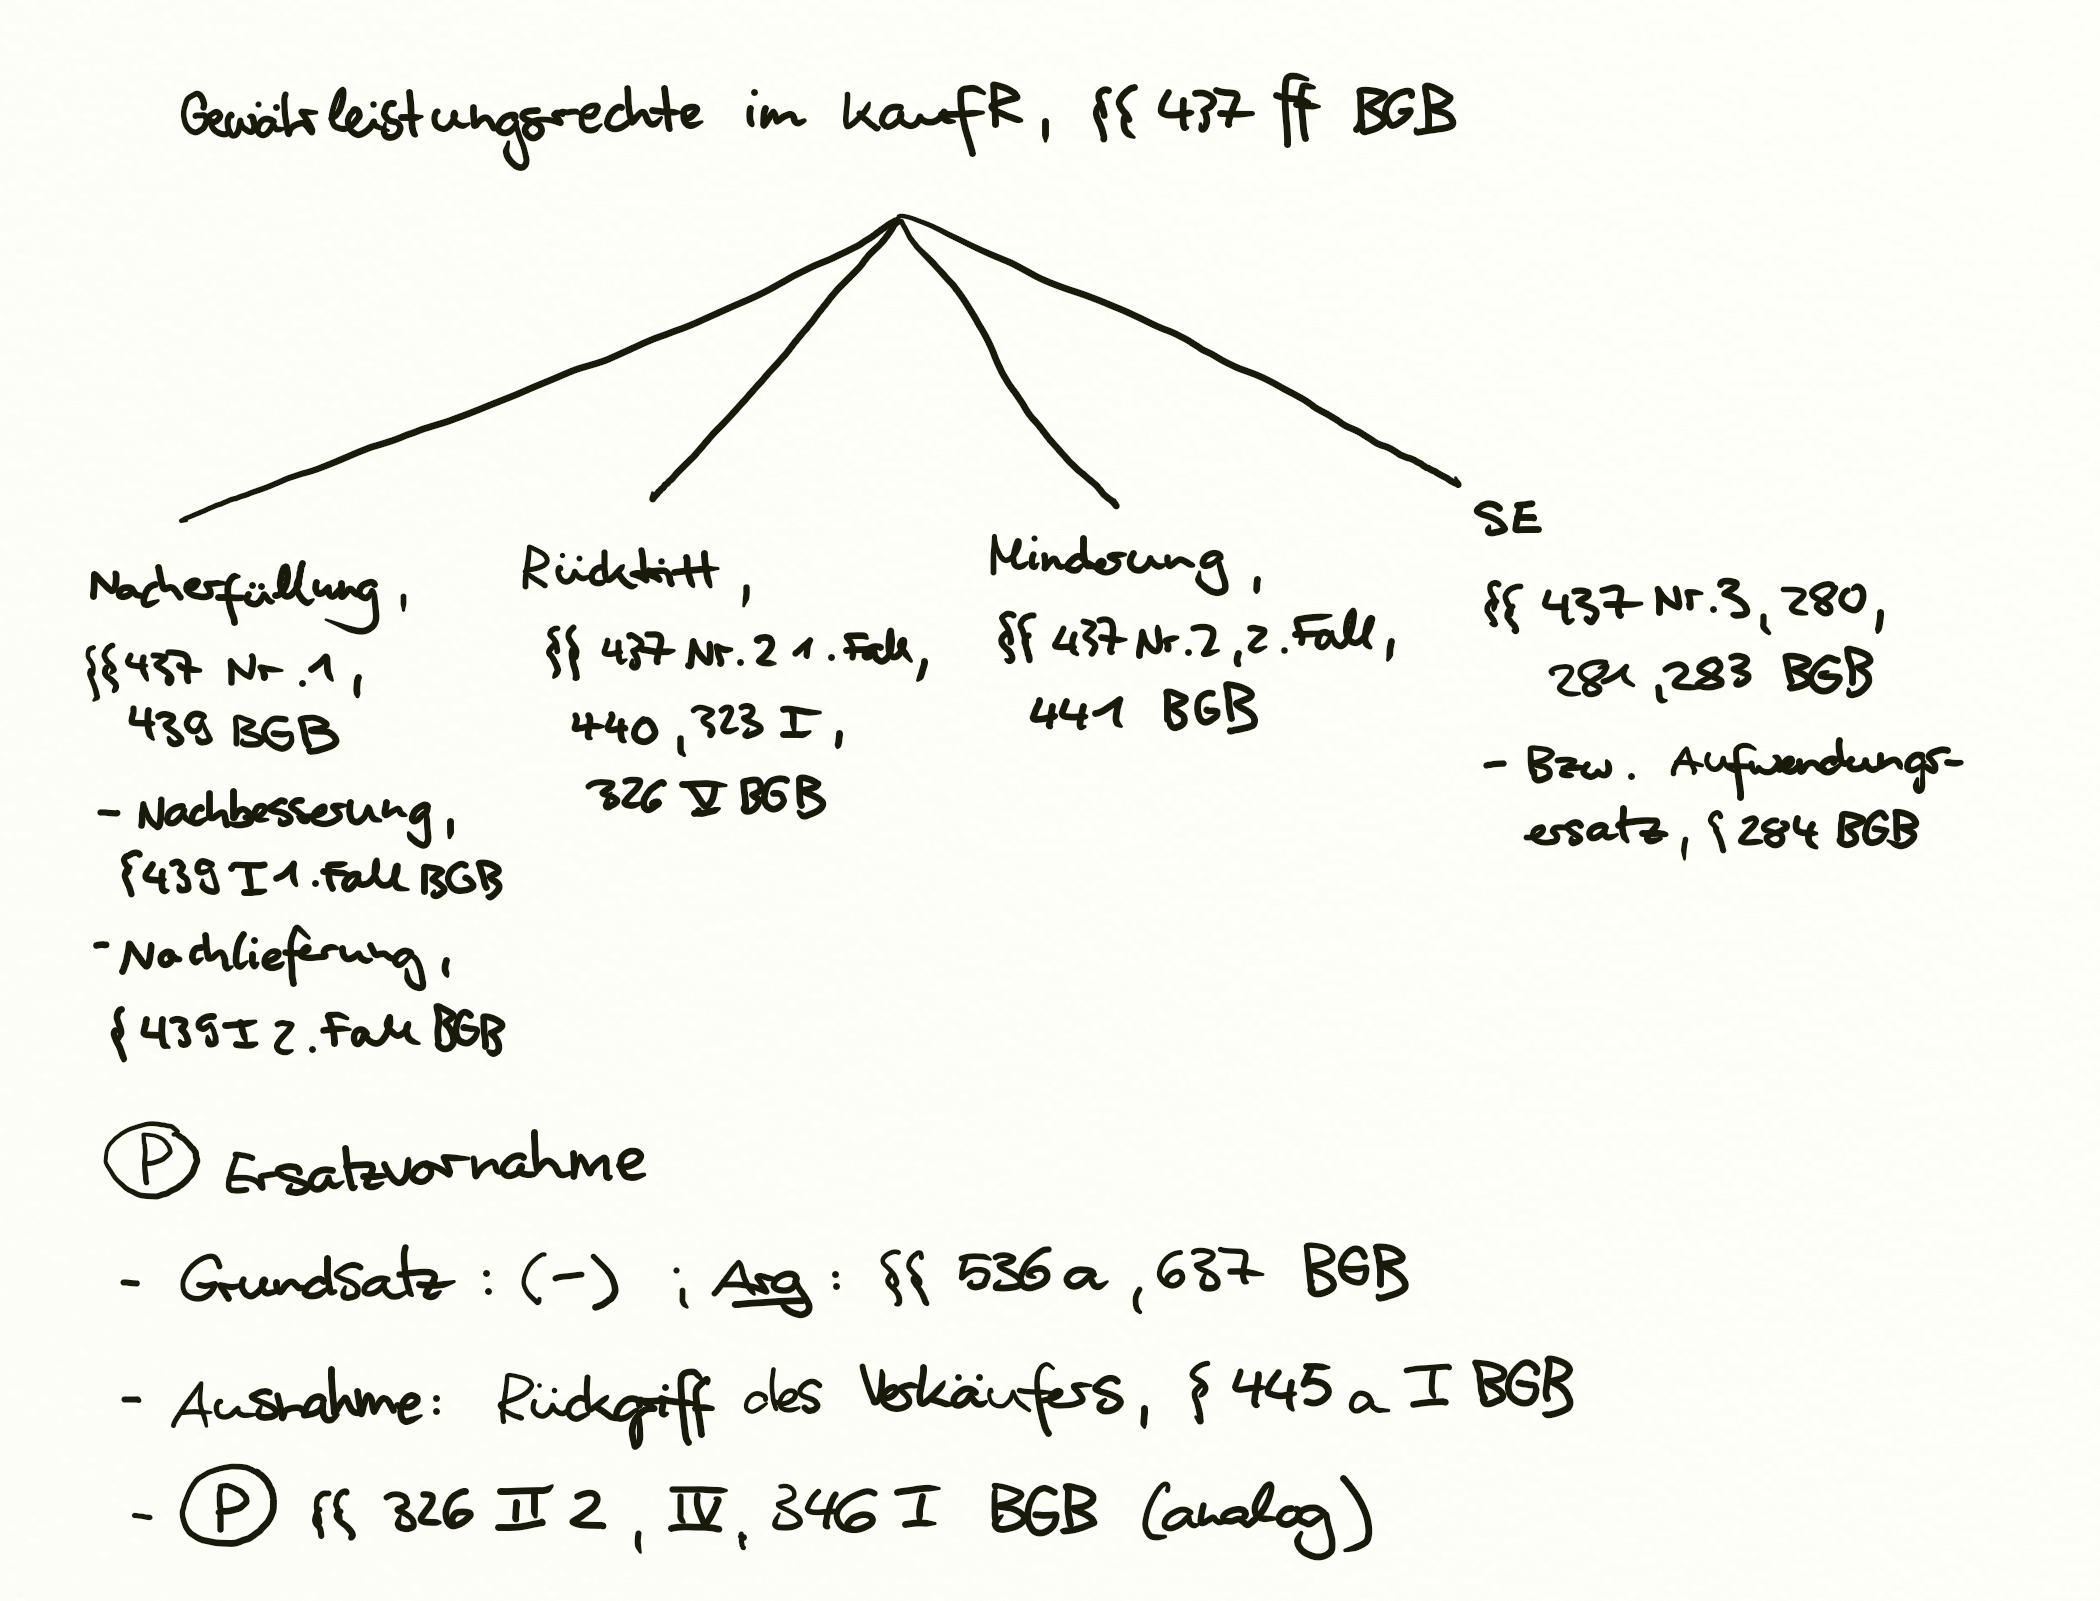 Gewährleistungsrechte im KaufR, §§ 437 ff BGB
Nacherfüllung,
§§ 437 Nr. 1,
439 BGB
- Nachbesserung,
§ 439 I 1. Fall BGB
- Nachlieferung,
§ 439 I 2. Fall BGB
Rücktritt,
§§ 437 Nr. 2 1. Fall,
440, 323 I,
326 V BGB
Minderung,
§§ 437 Nr. 2, 2. Fall,
441 BGB
SE
§§ 437 Nr. 3, 280,
281, 283 BGB
- Bzw. Aufwendungs-
ersatz, § 284 BGB
P Ersatzvornahme
- Grundsatz: (-) ; Arg: §§ 536 a, 637 BGB
- Ausnahme: Rückgriff des Verkäufers, § 445 a I BGB
- P §§ 326 II 2, IV, 346 I BGB (analog)